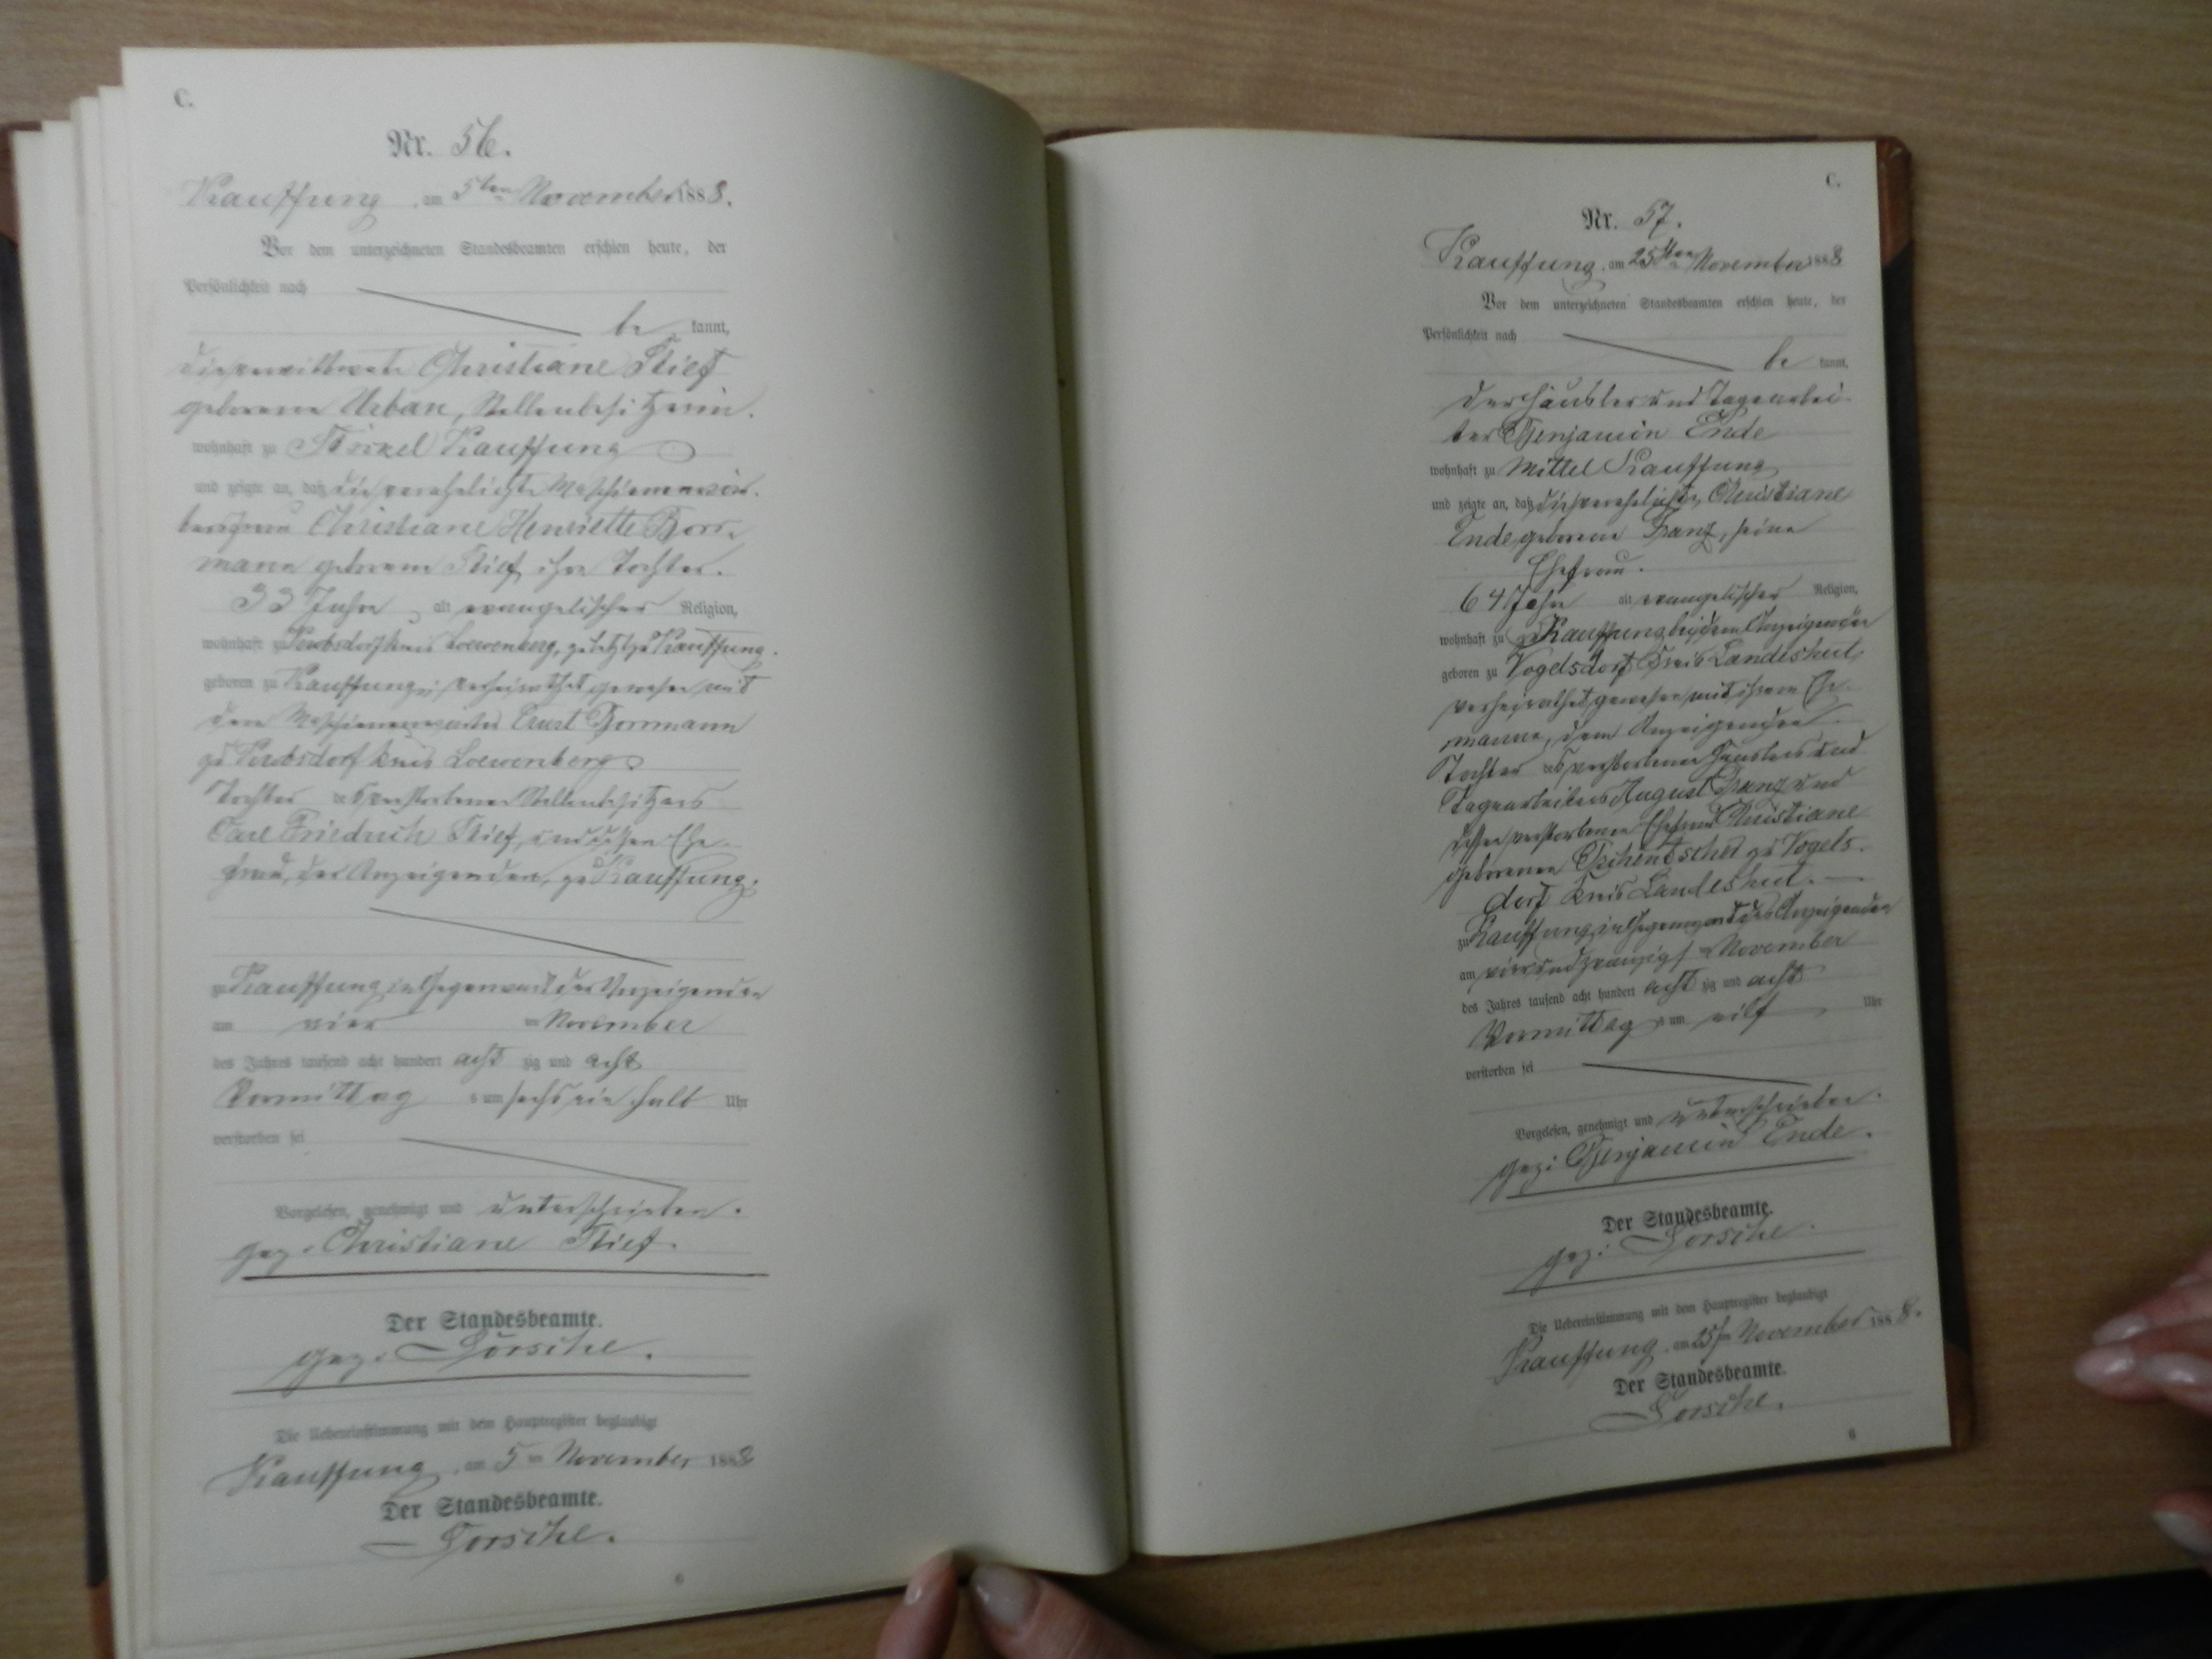 C.
Nr. 56.
Kauffung, am 5ten November 1888.
Vor dem unterzeichneten Standesbeamten erschien heute, der
Persönlichkeit nach
be kannt,
die verwittwete Christiane Stief
geborene Urban, Stellenbesitzerin.
wohnhaft zu Kauffung
und zeigte an, daß die verehelichte Maschinenwär-
tersfrau Christiane Henriette Borr-
mann geborene Stief ihre Tochter.
33 Jahre alt evangelischer Religion,
wohnhaft zu Kreis Loewenberg, zuletzt zu Kauffung.
geboren zu Kauffung, verheirathet gewesen mit
dem Maschinenwärter Ernst Borrmann
zu Kreis Loewenberg
Tochter des verstorbenen Stellenbesitzers
Carl Friedrich Stief, und dessen Ehe-
frau, der Anzeigenden, zu Kauffung.
zu Kauffung in Gegenwart der Anzeigenden
am vier ten November
des Jahres tausend acht hundert acht zig und acht
Vormittag s um sechs ein halb Uhr
verstorben sei
Vorgelesen, genehmigt und unterschrieben.
gez. Christiane Stief.
Der Standesbeamte.
gez.
Die Uebereinstimmung mit dem Hauptregister beglaubigt
Kauffung, am 5 ten November 1888
Der Standesbeamte.
6
C.
Nr. 57.
Kauffung, am 25sten November 1888
Vor dem unterzeichneten Standesbeamten erschien heute, der
Persönlichkeit nach
be kannt,
der Häusler und Tagearbei-
ter Benjamin Ende
wohnhaft zu Mittel Kauffung
und zeigte an, daß die verehelichte Christiane
Ende geborene Franz, seine
Ehefrau.
64 Jahre alt evangelischer Religion,
wohnhaft zu Kauffung bei dem Anzeigenden
geboren zu Vogelsdorf Kreis Landeshut,
verheirathet gewesen mit ihrem Ehe-
manne, dem Anzeigenden
Tochter des verstorbenen Häuslers und
Tagearbeiters August Franz und
dessen verstorbenen Ehefrau Christiane
geborenen zu Vogels-
dorf Kreis Landeshut.
zu Kauffung in Gegenwart des Anzeigenden
am vierundzwanzigsten November
des Jahres tausend acht hundert acht zig und acht
Vormittag s um elf Uhr
verstorben sei
Vorgelesen, genehmigt und unterschrieben.
gez: Benjamin Ende.
Der Standesbeamte.
gez:
Die Uebereinstimmung mit dem Hauptregister beglaubigt
Kauffung, am 25sten November 1888.
Der Standesbeamte.
6